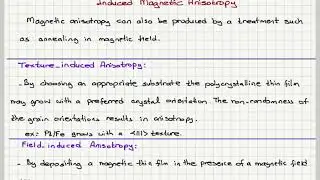 Induced Magnetic Anisotropy
Magnetic anisotropy can also be produced by a treatment such
as annealing in magnetic field.
Texture_induced Anisotropy:
. By choosing an appropriate substrate the polycrystalline thin film
may grow with a preferred crystal orientation. The non-randomness of
the grain orientations results in anisotropy.
ex: Pt/Fe grows with a <111> texture.
Field_induced Anisotropy:
. By depositing a magnetic thin film in the presence of a magnetic field